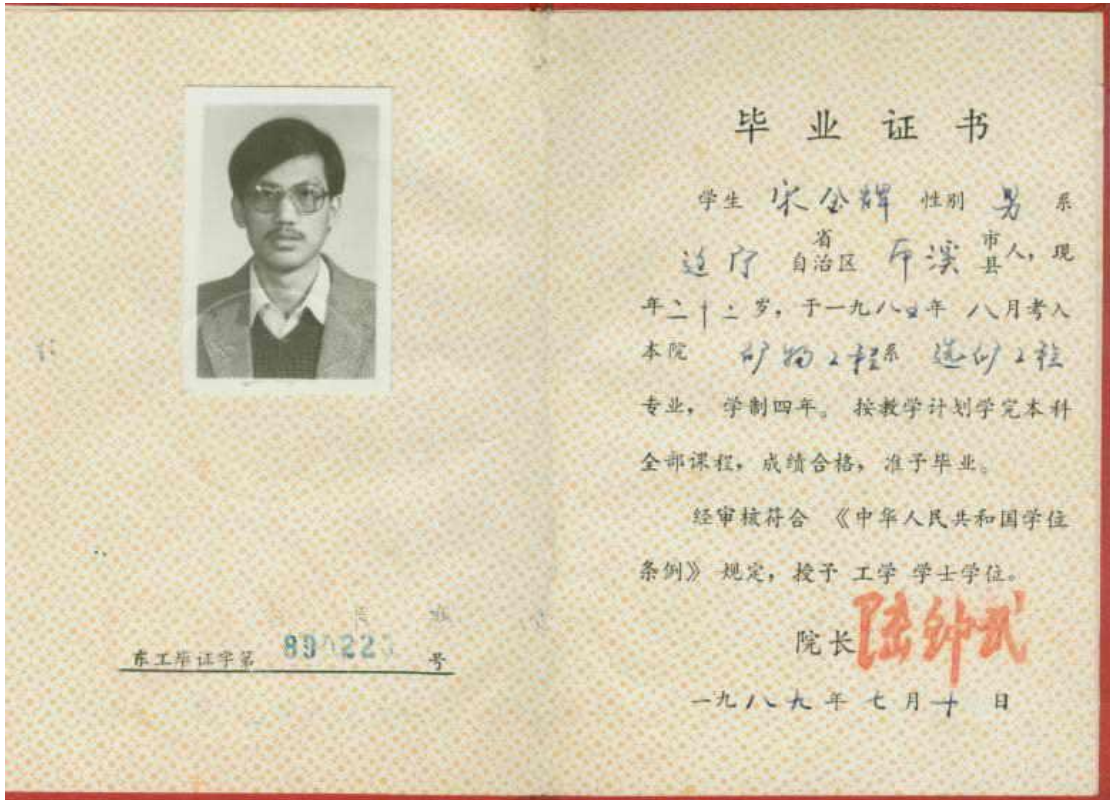 东工毕证字第 890223 号
毕业证书
学生 宋全辉 性别 男 系
辽宁 省自治区 本溪 市县人，现
年二十二岁，于一九八五年八月考入
本院 矿物工程系 选矿工程
专业，学制四年。按教学计划学完本科
全部课程，成绩合格，准予毕业。
经审核符合《中华人民共和国学位
条例》规定，授予 工学 学士学位。
院长 陆钟武
一九八九年七月十日